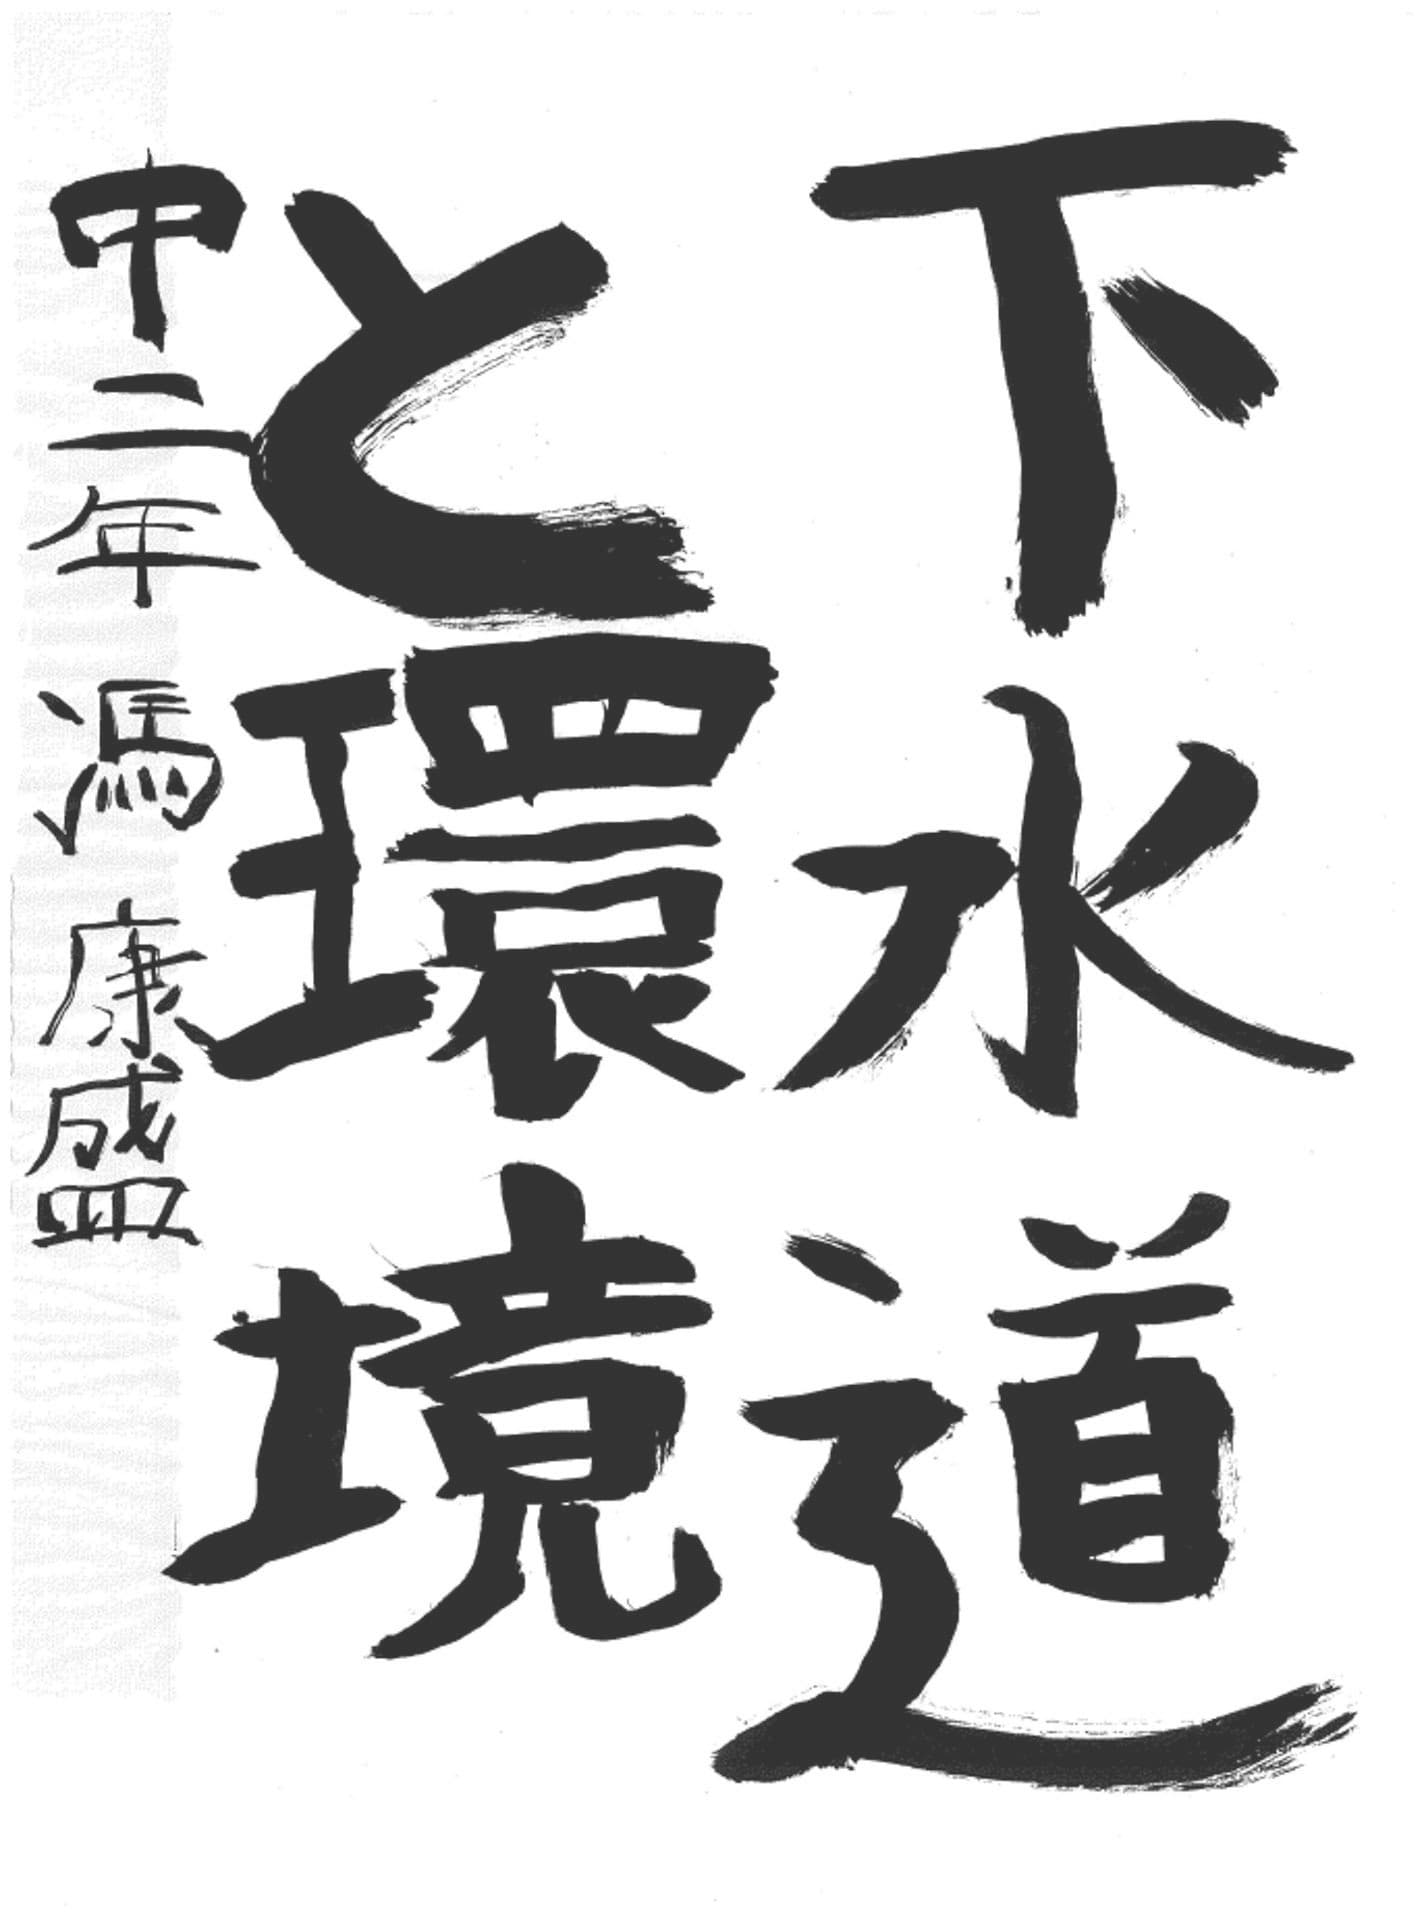 下水道
と環境
中二年 馮 康盛